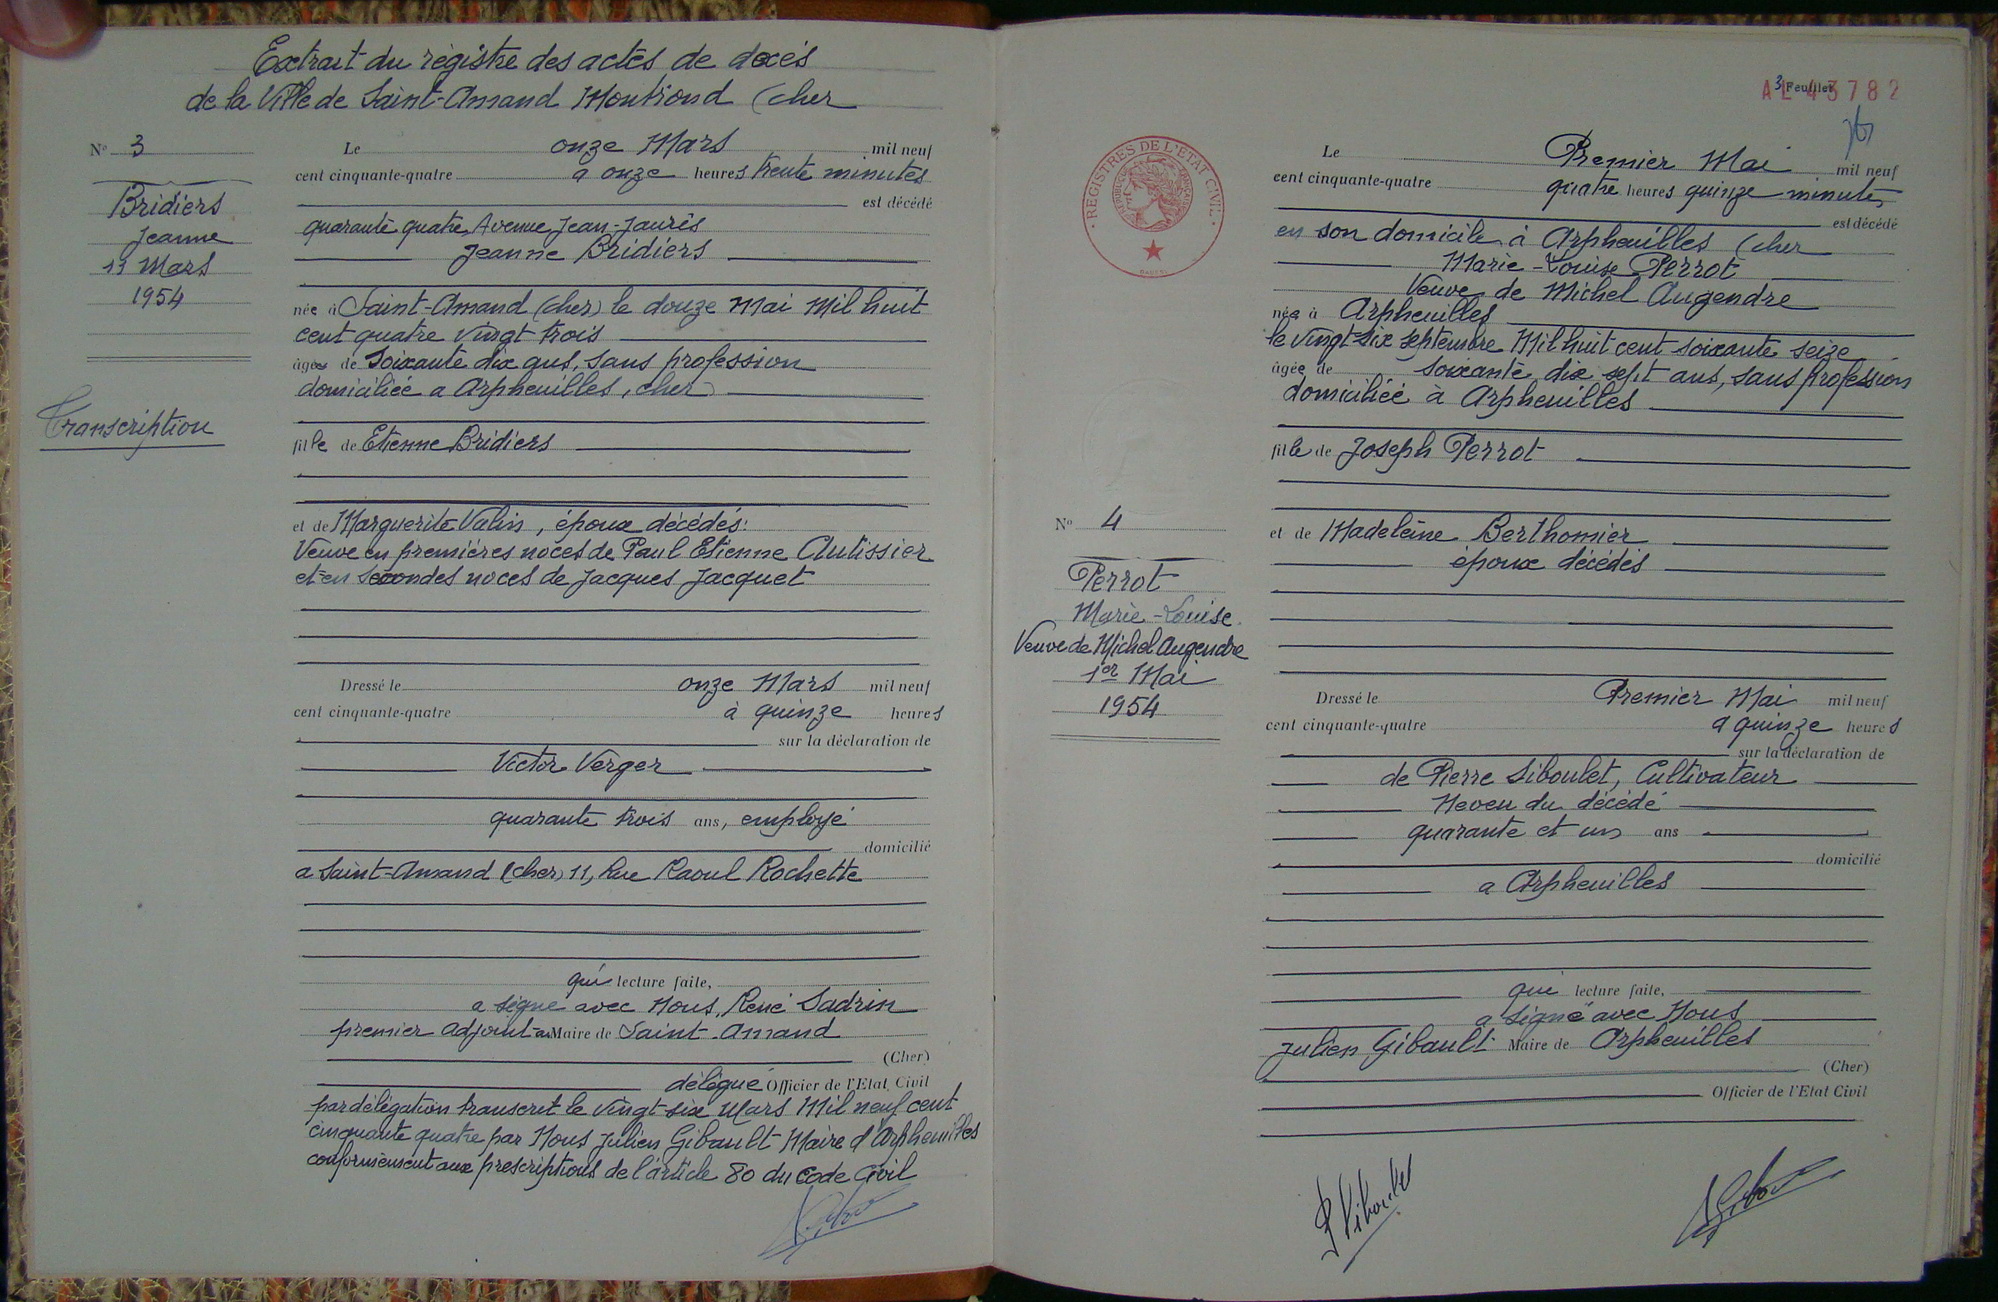 Extrait du régistre des actes de decés
de la Ville de Saint-Amand Montrond (cher
N° 3
Bridiers
Jeanne
11 Mars
1954
Transcription
Le onze Mars mil neuf
cent cinquante-quatre à onze heures trente minutes
est décédé
quarante quatre Avenue Jean-Jaurès
Jeanne Bridiers
née à Saint-Amand (cher) le douze Mai Mil huit
cent quatre vingt trois
âgée de Soixante dix ans, sans profession
domiciliée a Arpheuilles, cher)
fille de Etienne Bridiers
et de Marguerite Valin, époux décédés:
Veuve en premières noces de Paul Etienne Autissier
et en secondes noces de Jacques Jacquet
Dressé le onze Mars mil neuf
cent cinquante-quatre à quinze heures
sur la déclaration de
Victor Verger
quarante trois ans, employé
domicilié
a Saint-Amand (cher) 11, Rue Raoul Rochette
qui lecture faite,
a signé avec Nous, René Sadrin
premier adjoint au Maire de Saint-Amand
(Cher)
délégué Officier de l'Etat Civil
par délégation transcrit le vingt-six Mars Mil neuf cent
cinquante quatre par Nous Julien Gibault Maire d'Arpheuilles
conformément aux prescriptions de l'article 80 du code Civil
3 Feuillet
AL 43782
REGISTRES DE L'ETAT CIVIL
N° 4
Perrot
Marie-Louise
Veuve de Michel Augendre
1er Mai
1954
Le Premier Mai mil neuf
cent cinquante-quatre quatre heures quinze minutes
est décédé
en son domicile à Arpheuilles (cher
Marie-Louise Perrot
Veuve de Michel Augendre
née à Arpheuilles
le vingt-six septembre Mil huit cent soixante seize
âgée de soixante dix sept ans, sans profession
domiciliée à Arpheuilles
fille de Joseph Perrot
et de Madeleine Berthomier
époux décédés
Dressé le Premier Mai mil neuf
cent cinquante-quatre a quinze heures
sur la déclaration de
de Pierre Siboulet, Cultivateur
Neveu du décédé
quarante et un ans
domicilié
a Arpheuilles
qui lecture faite,
a signé avec Nous
Julien Gibault Maire de Arpheuilles
(Cher)
Officier de l'Etat Civil